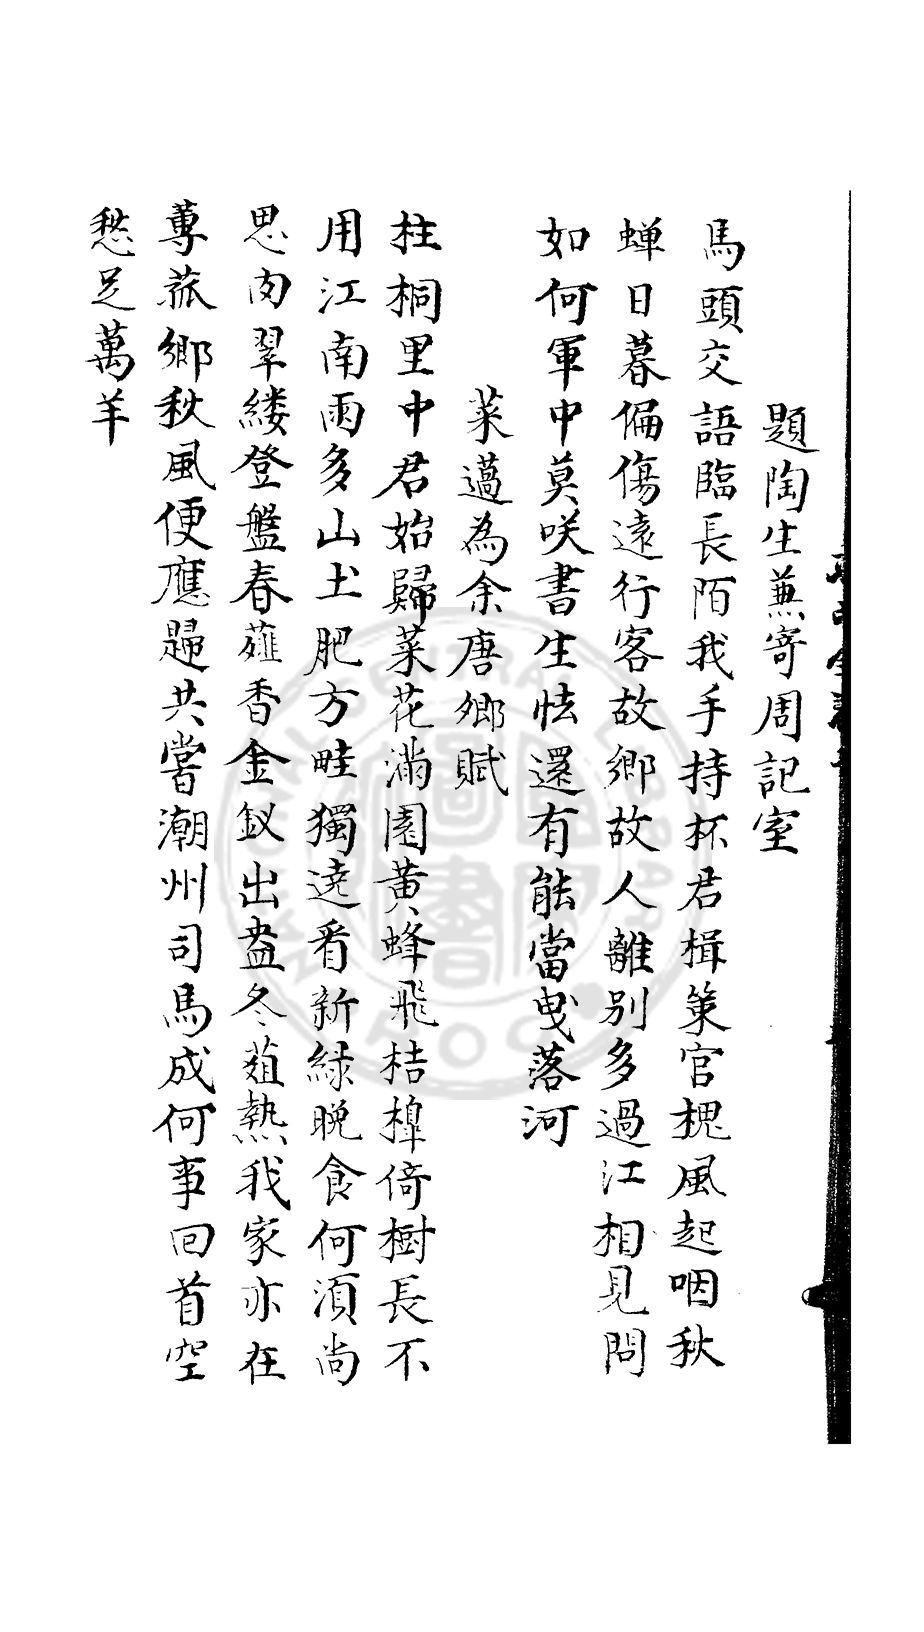 題陶生兼寄周記室
馬頭交語臨長陌我手持杯君楫策官槐風起咽秋
蟬日暮偏傷遠行客故鄉故人離別多過江相見問
如何軍中莫咲書生怯還有能當曳落河
菜薖為余唐卿賦
拄桐里中君始歸菜花滿園黃蜂飛桔槹倚樹長不
用江南雨多山土肥方畦獨遶看新緑晚食何須尚
思肉翠縷登盤春薤香金釵出盎冬葅熱我家亦在
蓴菰鄉秋風便應歸共嘗潮州司馬成何事回首空
愁足萬羊